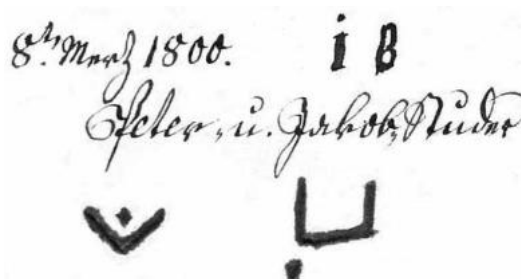 8.ᵗ Merz 1800. i B
Peter u. Jakob Studer